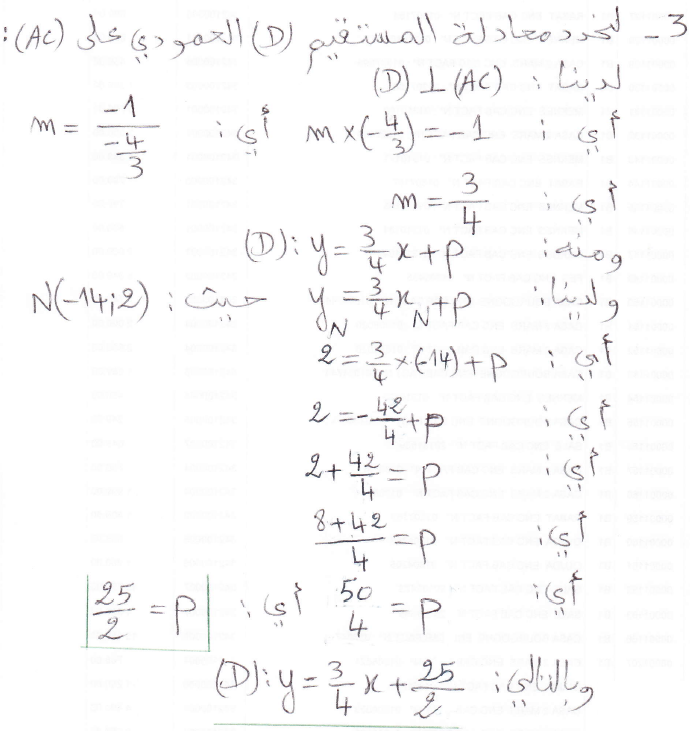 3 - لنحدد معادلة المستقيم (D) العمودي على (AC):
لدينا: (D) ⊥ (AC)
أي: m×(-4/3) = -1 أي: m = -1/(-4/3)
أي: m = 3/4
ومنه: (D): y = 3/4 x + p
ولدينا: y_N = 3/4 x_N + p حيث: N(-14;2)
أي: 2 = 3/4 × (-14) + p
أي: 2 = -42/4 + p
أي: 2 + 42/4 = p
أي: (8+42)/4 = p
أي: 50/4 = p أي: 25/2 = p
وبالتالي: (D): y = 3/4 x + 25/2